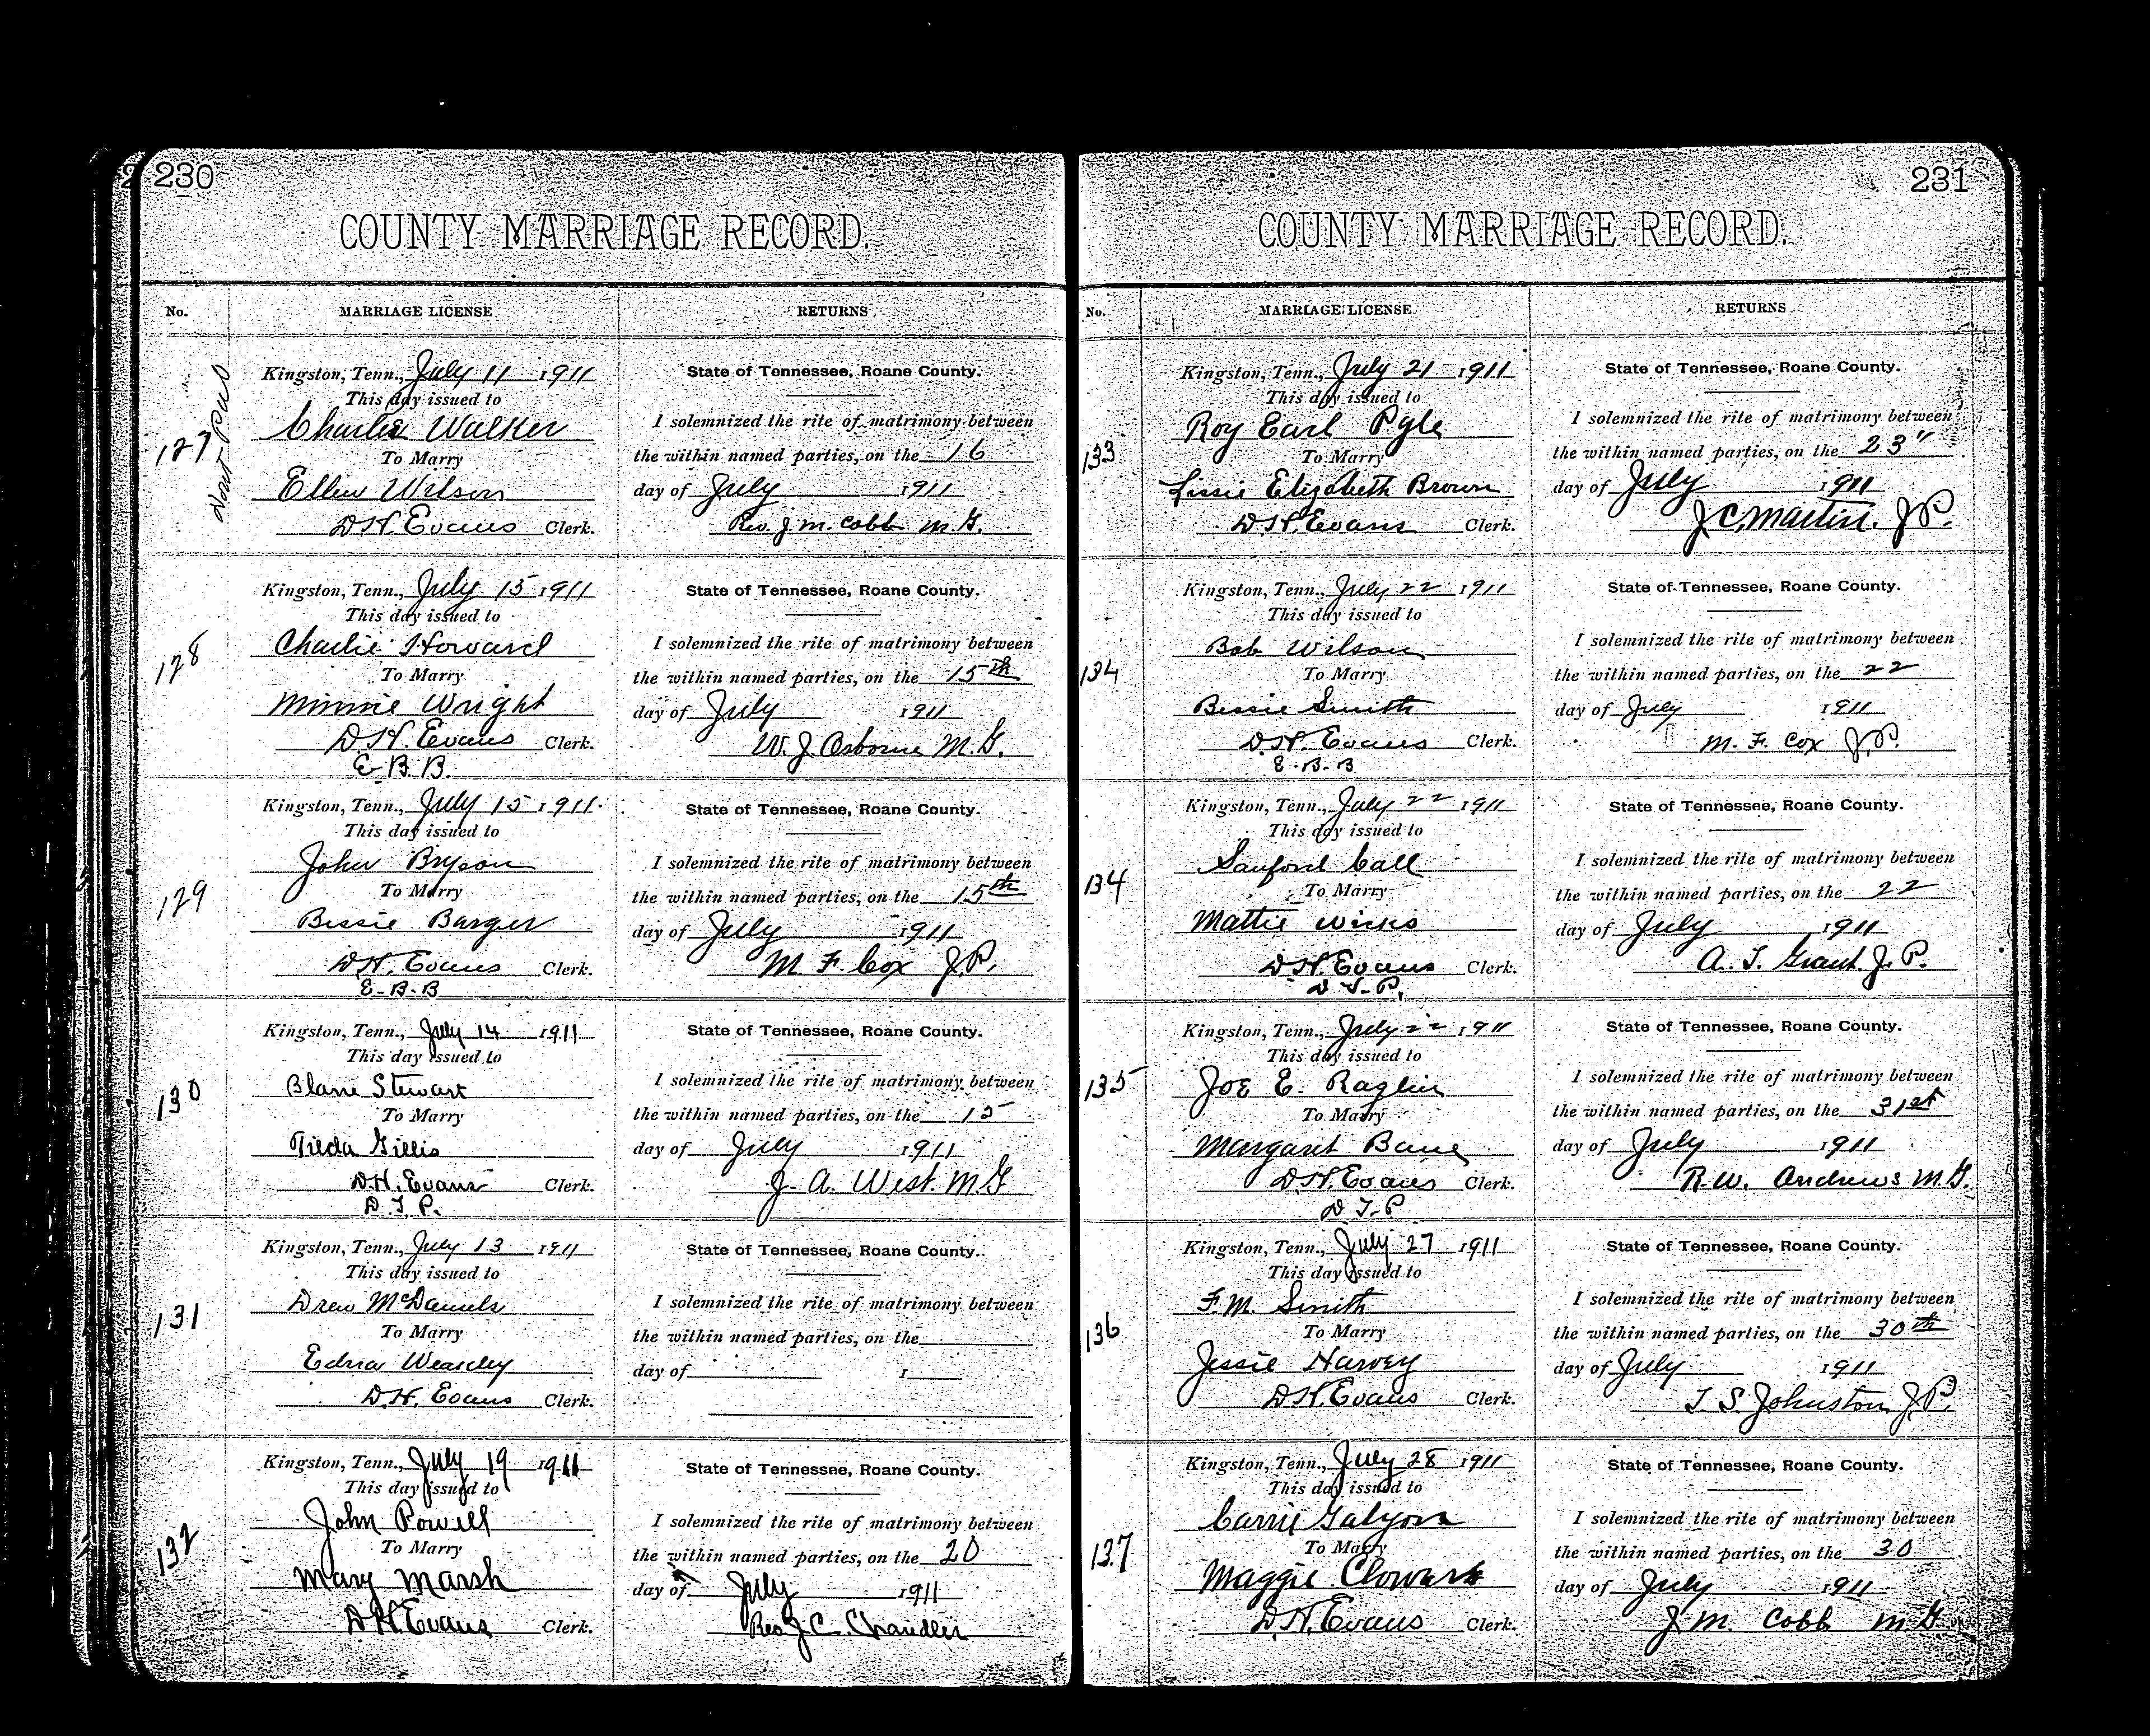 230
COUNTY MARRIAGE RECORD.
No.
MARRIAGE LICENSE
RETURNS
127
Kingston, Tenn., July 11 1911
This day issued to
Charlie Walker
To Marry
Ellen Wilson
D.H. Evans Clerk.
State of Tennessee, Roane County.
I solemnized the rite of matrimony between
the within named parties, on the 16
day of July 1911
Rev. J. M. Cobb M.G.
128
Kingston, Tenn., July 15 1911
This day issued to
Charlie Howard
To Marry
Minnie Wright
D.H. Evans Clerk.
E.B.B.
State of Tennessee, Roane County.
I solemnized the rite of matrimony between
the within named parties, on the 15th
day of July 1911
W. J. Osborne M.G.
129
Kingston, Tenn., July 15 1911
This day issued to
John Bryson
To Marry
Bessie Barger
D.H. Evans Clerk.
E-B-B
State of Tennessee, Roane County.
I solemnized the rite of matrimony between
the within named parties, on the 15th
day of July 1911
M. F. Cox J.P.
130
Kingston, Tenn., July 14 1911
This day issued to
Stewart
To Marry
Tilda Gillis
D.H. Evans Clerk.
D.T.P.
State of Tennessee, Roane County.
I solemnized the rite of matrimony between
the within named parties, on the 15
day of July 1911
J. A. West. M.G
131
Kingston, Tenn., July 13 1911
This day issued to
Drew McDaniels
To Marry
D.H. Evans Clerk.
State of Tennessee, Roane County.
I solemnized the rite of matrimony between
the within named parties, on the
day of 1
132
Kingston, Tenn., July 19 1911
This day issued to
John Powell
To Marry
Mary Marsh
D.H. Evans Clerk.
State of Tennessee, Roane County.
I solemnized the rite of matrimony between
the within named parties, on the 20
day of July 1911
Rev J. C. Chandler
231
COUNTY MARRIAGE RECORD.
No.
MARRIAGE LICENSE
RETURNS
133
Kingston, Tenn., July 21 1911
This day issued to
Roy Earl Pyle
To Marry
Lissie Elizabeth Brown
D.H. Evans Clerk.
State of Tennessee, Roane County.
I solemnized the rite of matrimony between
the within named parties, on the 23"
day of July 1911
J. C. Martin. J.P.
134
Kingston, Tenn., July 22 1911
This day issued to
Bob Wilson
To Marry
Bessie Smith
D.H. Evans Clerk.
E-B-B
State of Tennessee, Roane County.
I solemnized the rite of matrimony between
the within named parties, on the 22
day of July 1911
M. F. Cox J.P.
134
Kingston, Tenn., July 22 1911
This day issued to
Sanford Call
To Marry
Mattie Wicks
D.H. Evans Clerk.
D.T-P.
State of Tennessee, Roane County.
I solemnized the rite of matrimony between
the within named parties, on the 22
day of July 1911
A. T. Grant J. P.
135
Kingston, Tenn., July 22 1911
This day issued to
Joe E. Raglin
To Marry
Margaret Bane
D.H. Evans Clerk.
D T-P
State of Tennessee, Roane County.
I solemnized the rite of matrimony between
the within named parties, on the 31st
day of July 1911
R.W. Andrews M.G.
136
Kingston, Tenn., July 27 1911
This day issued to
F.M. Smith
To Marry
Jessie Harvey
D.H. Evans Clerk.
State of Tennessee, Roane County.
I solemnized the rite of matrimony between
the within named parties, on the 30th
day of July 1911
T. S. Johnston J.P.
137
Kingston, Tenn., July 28 1911
This day issued to
Carrie Galyon
To Marry
Maggie
D.H. Evans Clerk.
State of Tennessee, Roane County.
I solemnized the rite of matrimony between
the within named parties, on the 30
day of July 1911
J. M. Cobb M.G.